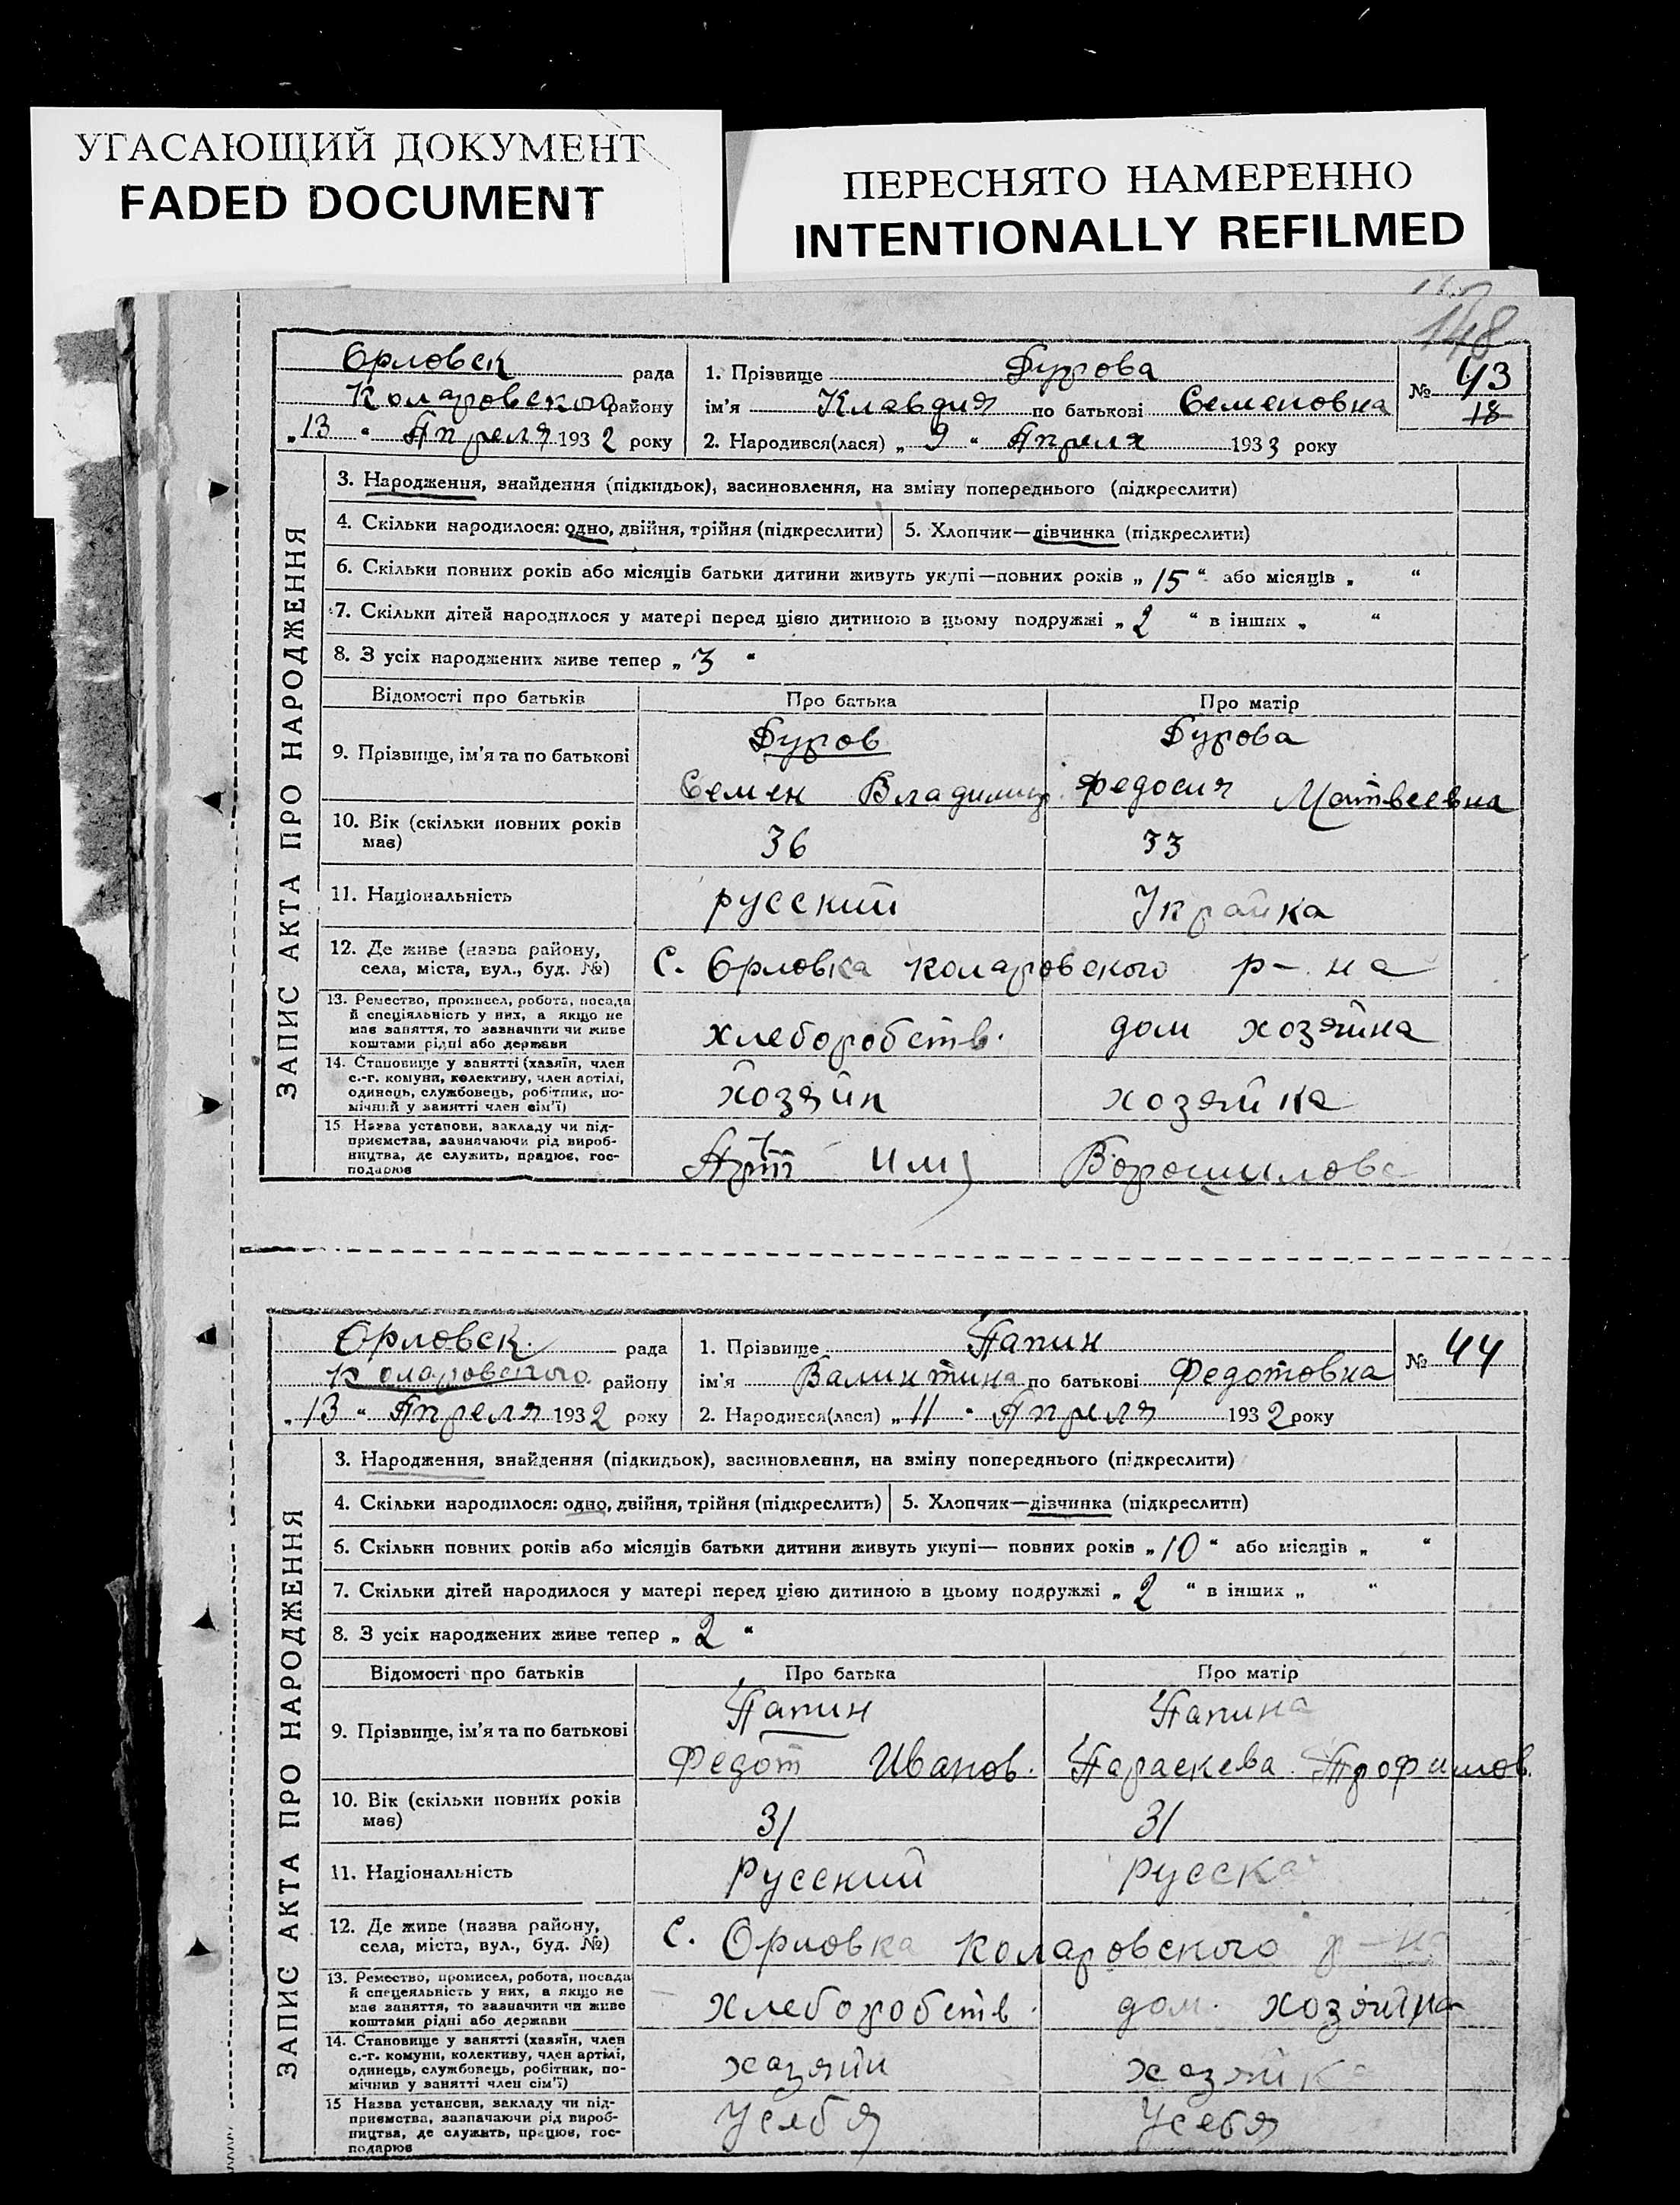 УГАСАЮЩИЙ ДОКУМЕНТ
FADED DOCUMENT
ПЕРЕСНЯТО НАМЕРЕННО
INTENTIONALLY REFILMED
148
Орловск рада
Коларовского району
„13“ Апреля 1932 року
1. Прізвище Дурова
ім'я Клавдия по батькові Семеновна
2. Народився(лася) „9“ Апреля 1933 року
№ 43
18
ЗАПИС АКТА ПРО НАРОДЖЕННЯ
3. Народження, знайдення (підкидьок), засиновлення, на зміну попереднього (підкреслити)
4. Скільки народилося: одно, двійня, трійня (підкреслити) 5. Хлопчик—дівчинка (підкреслити)
6. Скільки повних років або місяців батьки дитини живуть укупі—повних років „15“ або місяців „ “
7. Скільки дітей народилося у матері перед цією дитиною в цьому подружжі „2“ в інших „ “
8. З усіх народжених живе тепер „3“
Відомості про батьків Про батька Про матір
9. Прізвище, ім'я та по батькові
Дуров Дурова
Семен Владимир. Федосия Матвеевна
10. Вік (скільки повних років
має)
36 33
11. Національність русский Украйка
12. Де живе (назва району,
села, міста, вул., буд. №)
с. Орловка коларовского р-на
13. Ремество, промисел, робота, посада
й спеціяльність у них, а якщо не
має заняття, то зазначити чи живе
коштами рідні або держави
хлеборобств. дом хозяйна
14. Становище у занятті (хазяїн, член
с.-г. комуни, колективу, член артілі,
одинець, службовець, робітник, по-
мічний у занятті член сім'ї)
хозяйн хозяйка
15 Назва установи, закладу чи під-
приємства, зазначаючи рід вироб-
ництва, де служить, працює, гос-
подарює
Арт им Ворошилова
Орловск. рада
Коларовского району
„13“ Апреля 1932 року
1. Прізвище Папин
ім'я Валинтина по батькові Федотовна
2. Народився(лася) „11“ Апреля 1932 року
№ 44
ЗАПИС АКТА ПРО НАРОДЖЕННЯ
3. Народження, знайдення (підкидьок), засиновлення, на зміну попереднього (підкреслити)
4. Скільки народилося: одно, двійня, трійня (підкреслить) 5. Хлопчик—дівчинка (підкреслити)
6. Скільки повних років або місяців батьки дитини живуть укупі— повних років „10“ або місяців „ “
7. Скільки дітей народилося у матері перед цією дитиною в цьому подружжі „2“ в інших „ “
8. З усіх народжених живе тепер „2“
Відомості про батьків Про батька Про матір
9. Прізвище, ім'я та по батькові
Папин Папина
Федот Иванов. Параскева Трофимов.
10. Вік (скільки повних років
має)
31 31
11. Національність Русский русска
12. Де живе (назва району,
села, міста, вул., буд. №)
с. Орловка коларовского р-на
13. Ремество, промисел, робота, посада
й спецеяльність у них, а якщо не
має заняття, то зазначити чи живе
коштами рідні або держави
хлеборобств. дом. хозяйка
14. Становище у занятті (хазяїн, член
с.-г. комуни, колективу, член артілі,
одинець, службовець, робітник, по-
мічний у занятті член сім'ї)
хазяйн хазяйка
15 Назва установи, закладу чи під-
приємства, зазначаючи рід вироб-
ництва, де служить, працює, гос-
подарює
Усебя Усебя